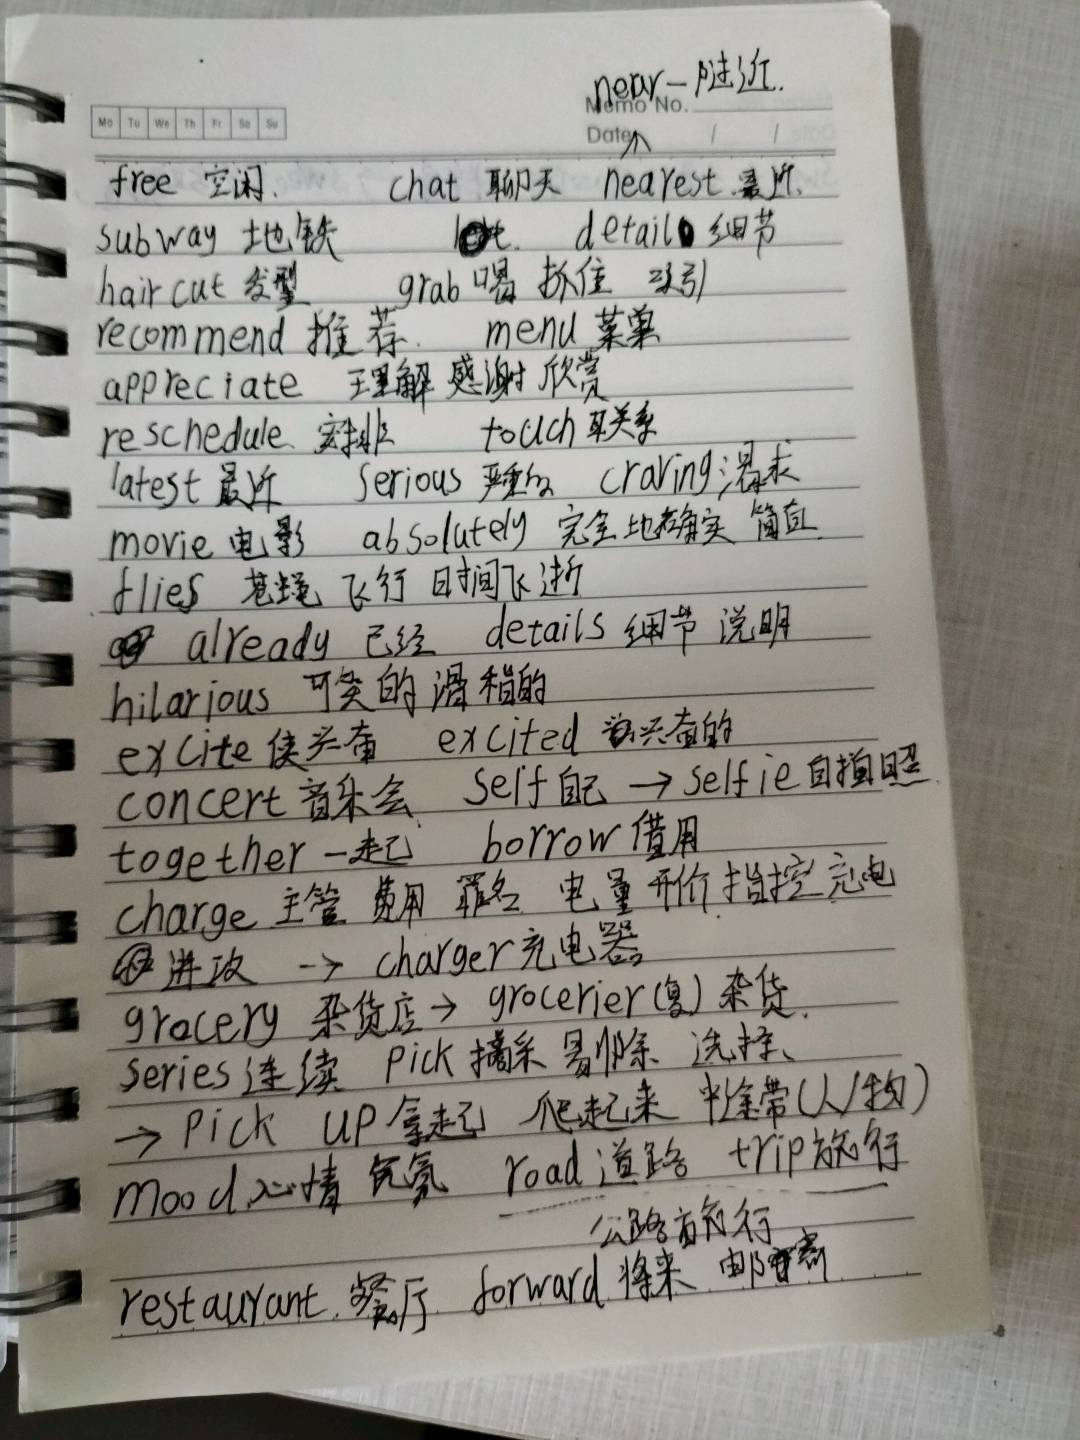 near — 附近.
Mo Tu We Th Fr Sa Su
Memo No.
Date / /
free 空闲. chat 聊天 nearest 最近.
subway 地铁 detail 细节
haircut 发型 grab 喝 抓住 吸引
recommend 推荐. menu 菜单
appreciate 理解 感谢 欣赏
reschedule. 安排 touch 联系
latest 最近 serious 严重的 craving 渴求
movie 电影 absolutely 完全地 确实 简直
flies 苍蝇 飞行 时间飞逝
already 已经 details 细节 说明
hilarious 可笑的 滑稽的
excite 使兴奋 excited 兴奋的
concert 音乐会 self 自己 → selfie 自拍照
together 一起 borrow 借用
charge 主管 费用 罪名 电量 开价 指控 充电
进攻 → charger 充电器
grocery 杂货店 → grocerier (复) 杂货.
series 连续 pick 摘采 剔除 选择、
→ pick up 拿起 爬起来 中途带(人/物)
mood 心情 氛氛 road 道路 trip 旅行
公路旅行
restaurant 餐厅 forward 将来 邮寄